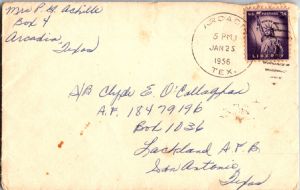 Mrs P. H. Achille
Box 4
Arcadia,
Texas
ARCADIA
5 PM
JAN 25
1956
TEX.
LIBERTY
S/B Clyde E. O'Callaghan
A.F. 18479196
Box 1036
Lackland A.F.B.
San Antonio,
Texas